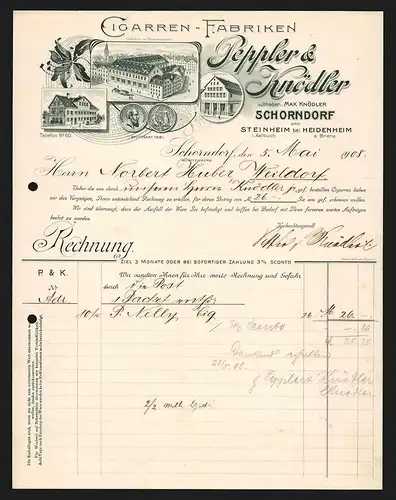 CIGARREN-FABRIKEN
Peppler &
Knödler
Inhaber: MAX KNÖDLER
SCHORNDORF
UND
STEINHEIM bei HEIDENHEIM
i. Aalbuch. a. Brenz.
Telefon No 60.
STUTTGART 1881.
Schorndorf, den 5. Mai 1908.
(WÜRTTEMBERG)
Herrn Norbert Huber, Walldorf
Ueber die uns durch unsern Herrn Knödler jr. gef. bestellten Cigarren haben
wir das Vergnügen, Ihnen untenstehend Rechnung zu erteilen, für deren Betrag von M. 26.- Sie uns gef. erkennen wollen.
Wir sind überzeugt, dass der Ausfall der Ware Sie befriedigt und hoffen bei Bedarf mit Ihren ferneren werten Aufträgen
beehrt zu werden.
Hochachtungsvoll
Peppler & Knödler
Rechnung.
ZIEL 3 MONATE ODER BEI SOFORTIGER ZAHLUNG 3% SCONTO
P. & K.
Wir sandten Ihnen für Ihre werte Rechnung und Gefahr
No
durch die Post
Adr.
1 Packet
10/10 P. Nelly, Cig 26 M 26.-
Sconto
Dankend erhalten
p. Peppler & Knödler
Knödler